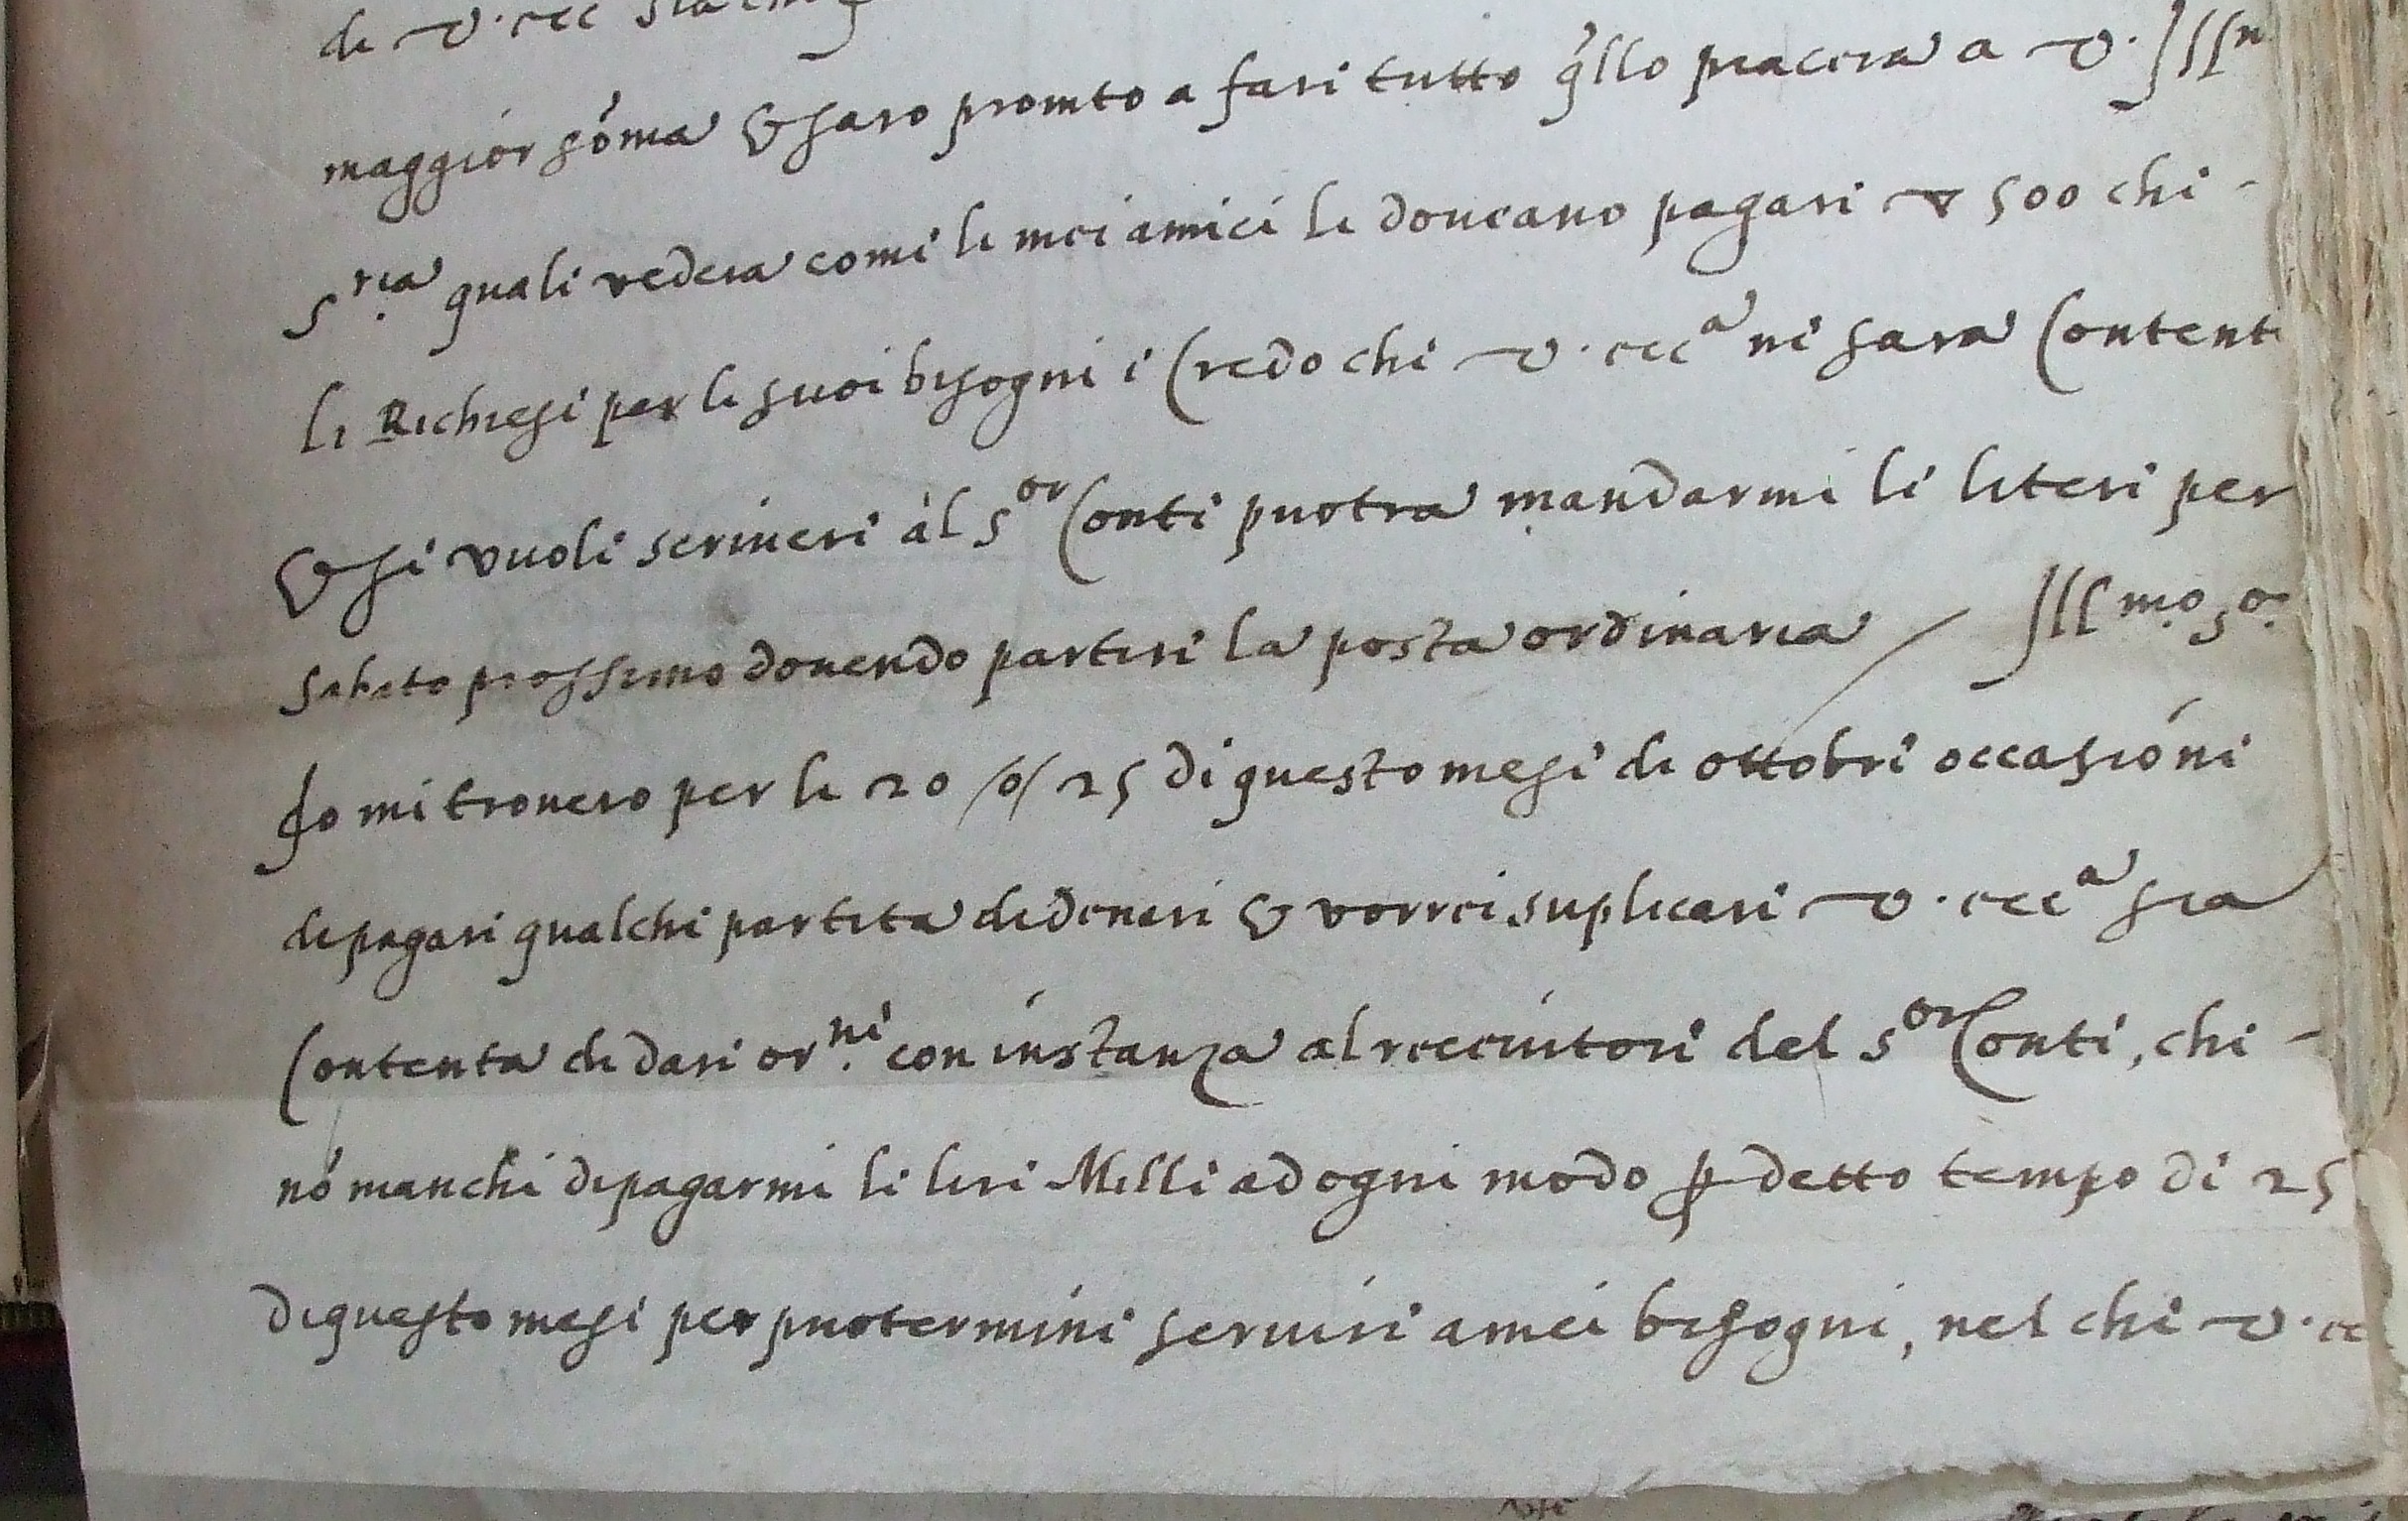 di v. ecc
maggior sóma & saro promto a fari tutto q̃llo piacera a v. Ill
S.ria quali vedera comi li mei amici li doueano pagari ▽ 500 chi -
li Richiesi per li suoi bisogni i Credo chi v. ecc.a ni sara Content
& si vuoli scriueri ál S.or Conti puotra mandarmi li literi per
sabato prossimo douendo partiri la posta ordinaria / Ill.mo S.or
Io mi trouero per li 20 /o/ 25 di questo mesi di ottobri occasióni
di pagari qualchi partita di denari & vorrei suplicari v. ecc.a sia
Contenta di dari or.ni con instanza al receuitori del S.or Conti, chi -
nó manchi di pagarmi li liri Milli ad ogni modo ꝑ detto tempo di 25
di questo mesi per puotermini seruiri a mei bisogni, nel chi v. ec